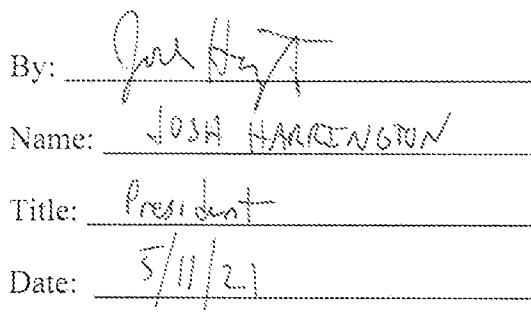 By: Josh
Name: JOSH HARRINGTON
Title: President
Date: 5/11/21